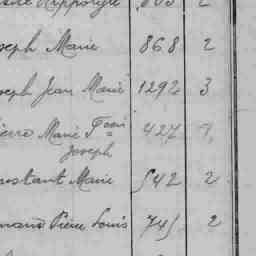 Hippolyte 603 2
Joseph Marie 868 2
Joseph Jean Marie 1292 3
Pierre Marie Fçois 427
Joseph
Constant Marie 542 2
Pierre Louis 745 2